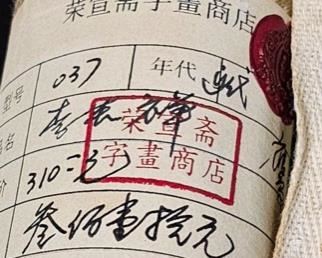 荣宣斋字畫商店
型号 037 年代
名
荣宣斋
字畫商店
价 310元
叁佰壹拾元